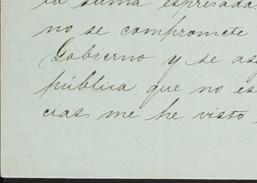 la suma expresada
no se compromete
Gobierno y se as
pública que no es
cias me he visto